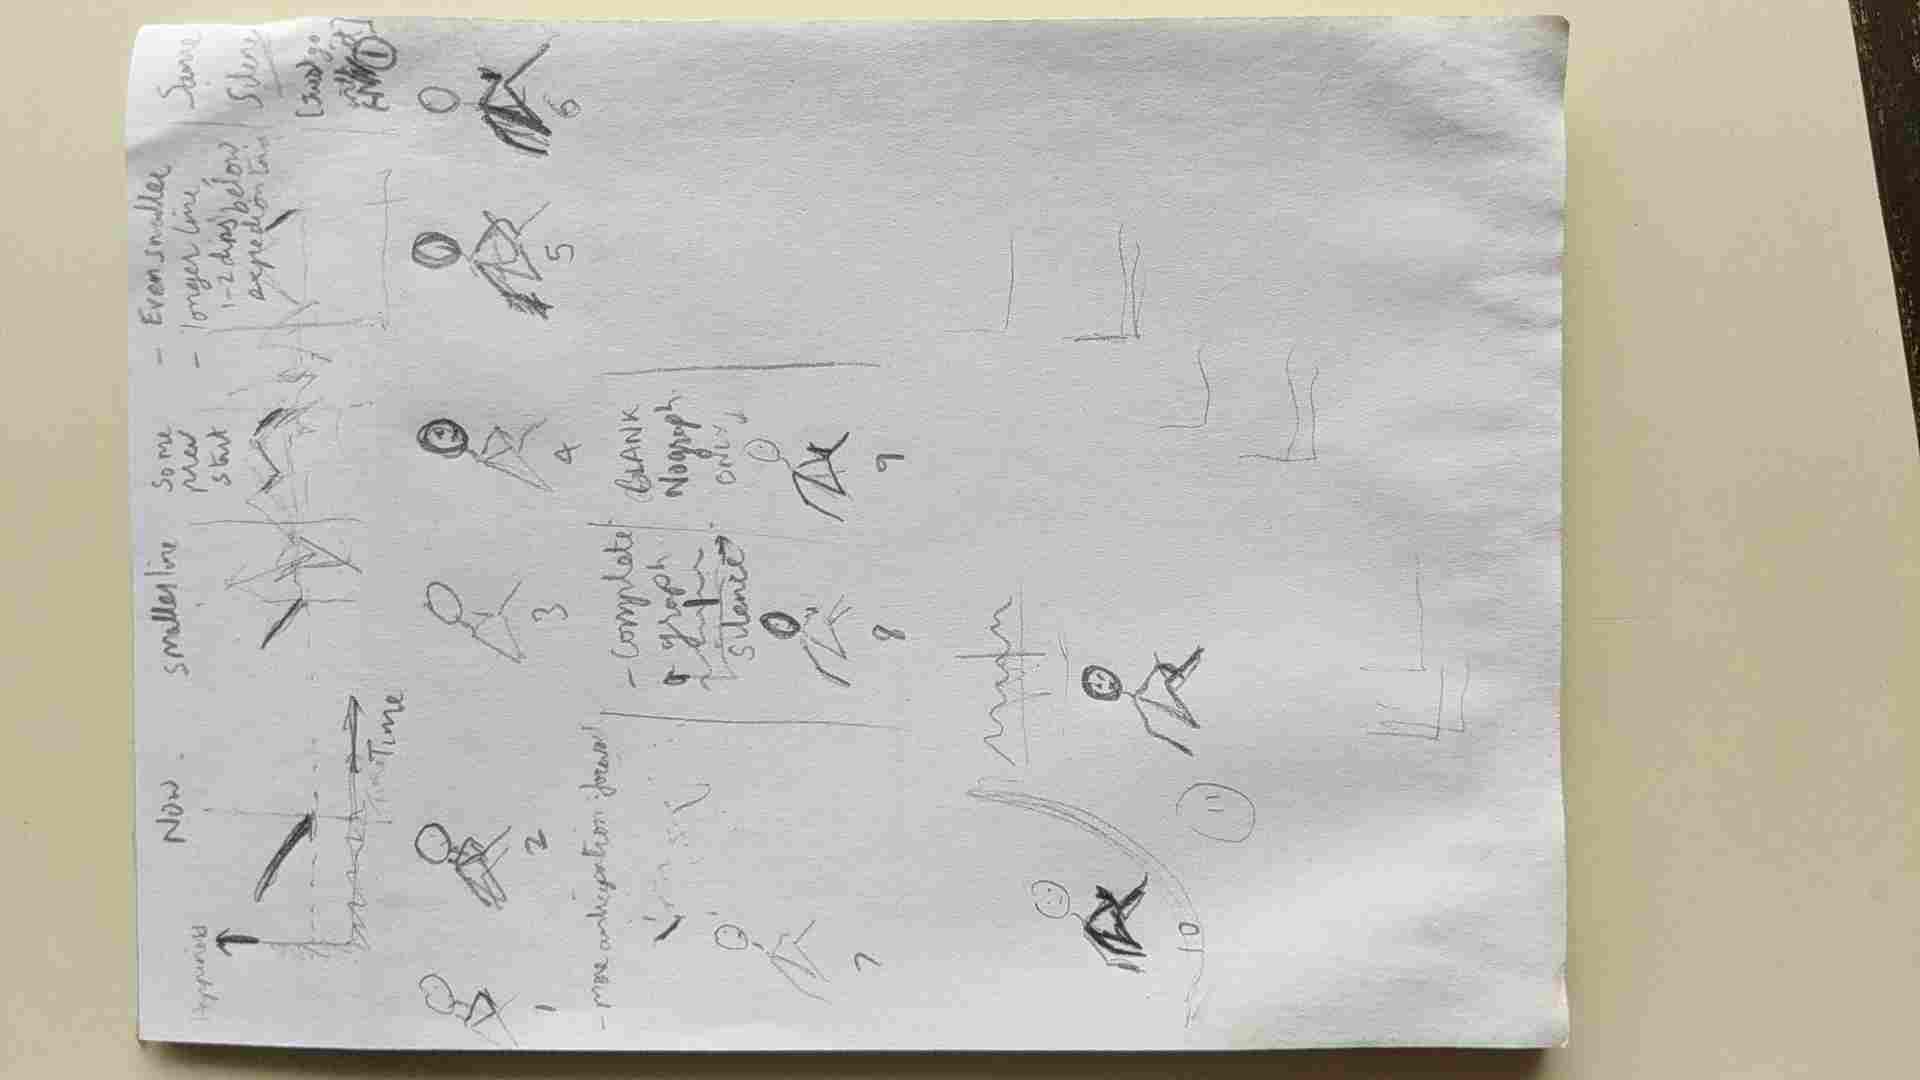 Now.
Happiness
Time
Smaller line
Some
prev
start
- Even smaller
- longer line,
1-2 dips below
Same
Silence
(Just) go
1
1
2
3
4
5
6
- more anticipation forward
7
- Complete
graph
Silence
8
BLANK
No graph
ONLY
9
10
11